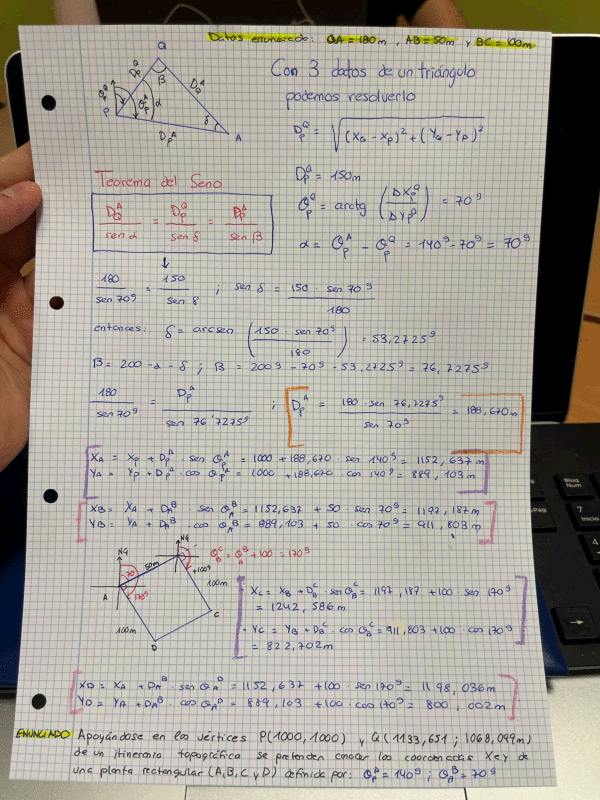 Datos enunciado: QA = 180m, AB = 50m y BC = 100m
Q
Con 3 datos de un triángulo
podemos resolverlo
β
α
δ
P
A
D_P^Q
D_Q^A
D_P^A
θ_P^Q
θ_P^A
D_P^Q = √((X_Q - X_P)² + (Y_Q - Y_P)²)
Teorema del Seno
D_P^Q = 150m
θ_P^Q = arctg (ΔX_P^Q / ΔY_P^Q) = 70g
D_Q^A / sen α = D_P^Q / sen δ = D_P^A / sen β
α = θ_P^A - θ_P^Q = 140g - 70g = 70g
180 / sen 70g = 150 / sen δ ; sen δ = 150 · sen 70g / 180
entonces: δ = arcsen (150 · sen 70g / 180) = 53,2725g
β = 200 - α - δ ; β = 200g - 70g - 53,2725g = 76,7275g
180 / sen 70g = D_P^A / sen 76'7275g ; D_P^A = 180 · sen 76,7275g / sen 70g = 188,670m
X_A = X_P + D_P^A · sen θ_P^A = 1000 + 188,670 · sen 140g = 1152,637 m
Y_A = Y_P + D_P^A · cos θ_P^A = 1000 + 188,670 cos 140g = 889,103 m
X_B = X_A + D_A^B · sen θ_A^B = 1152,637 + 50 · sen 70g = 1197,187m
Y_B = Y_A + D_A^B · cos θ_A^B = 889,103 + 50 · cos 70g = 911,803m
NG
NG
θ_B^C = θ_A^B + 100 = 170g
50m
70g
+100g
170g
100m
A
C
100m
D
· X_C = X_B + D_B^C · sen θ_B^C = 1197,187 + 100 sen 170g
= 1242,586m
· Y_C = Y_B + D_B^C · cos θ_B^C = 911,803 + 100 · cos 170g
= 822,702m
X_D = X_A + D_A^B · sen θ_A^D = 1152,637 + 100 · sen 170g = 1198,036m
Y_D = Y_A + D_A^B · cos θ_A^D = 889,103 + 100 · cos 170g = 800,002m
ENUNCIADO Apoyándose en los vértices P(1000,1000) y Q(1133,651; 1068,099m)
de un itinerario topográfico se pretenden conocer las coordenadas X e Y de
una planta rectangular (A,B,C y D) definida por: θ_P^A = 140g ; θ_A^B = 70g
Bloq
Num
7
Inicio